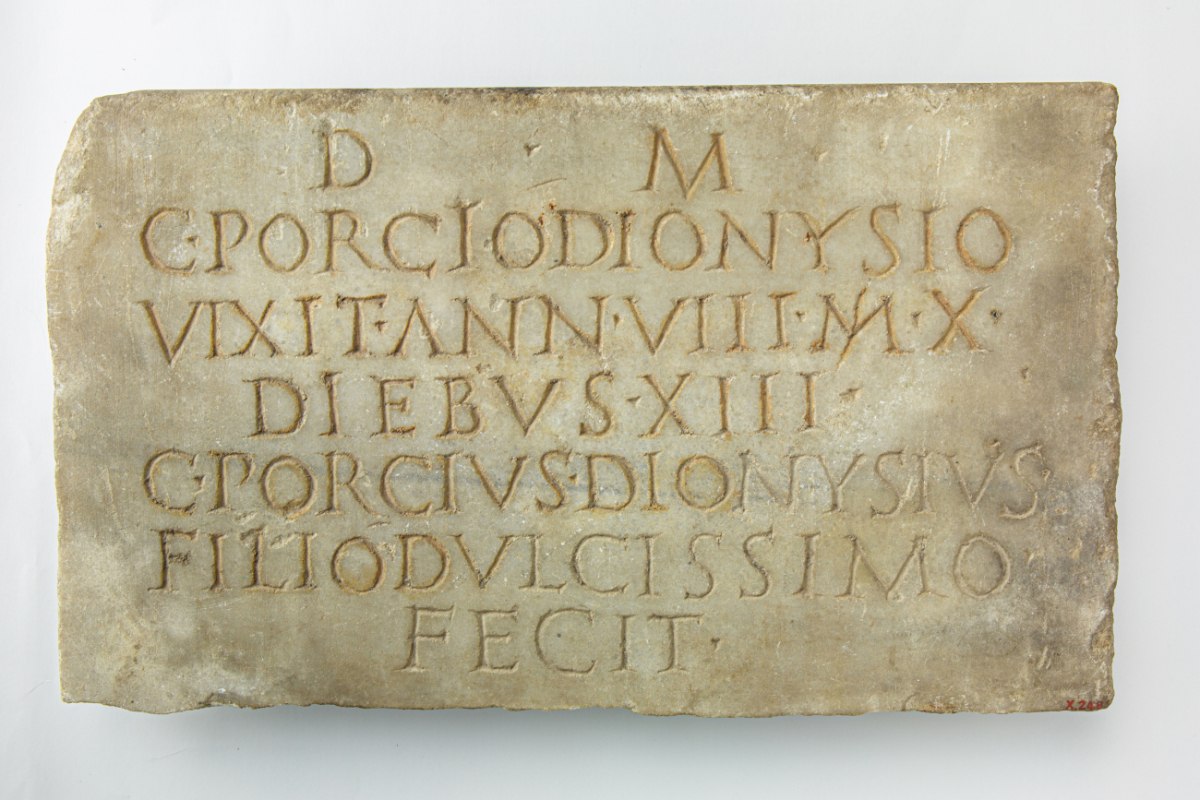 D · M
C·PORCIO DIONYSIO
VIXIT·ANN·VIIII·M·X·
DIEBVS·XIII·
C·PORCIVS·DIONYSIVS
FILIO DVLCISSIMO
FECIT·